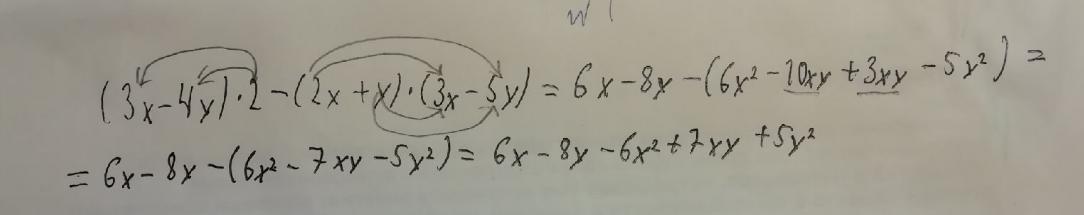 (3x-4y)·2-(2x+y)·(3x-5y)=6x-8y-(6x²-10xy+3xy-5y²)=
=6x-8y-(6x²-7xy-5y²)=6x-8y-6x²+7xy+5y²